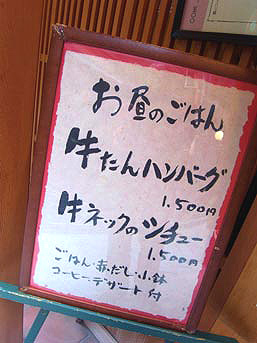 お昼のごはん
牛たんハンバーグ
1.500円
牛ネックのシチュー
1.500円
ごはん・赤だし・小鉢
コーヒー・デザート付